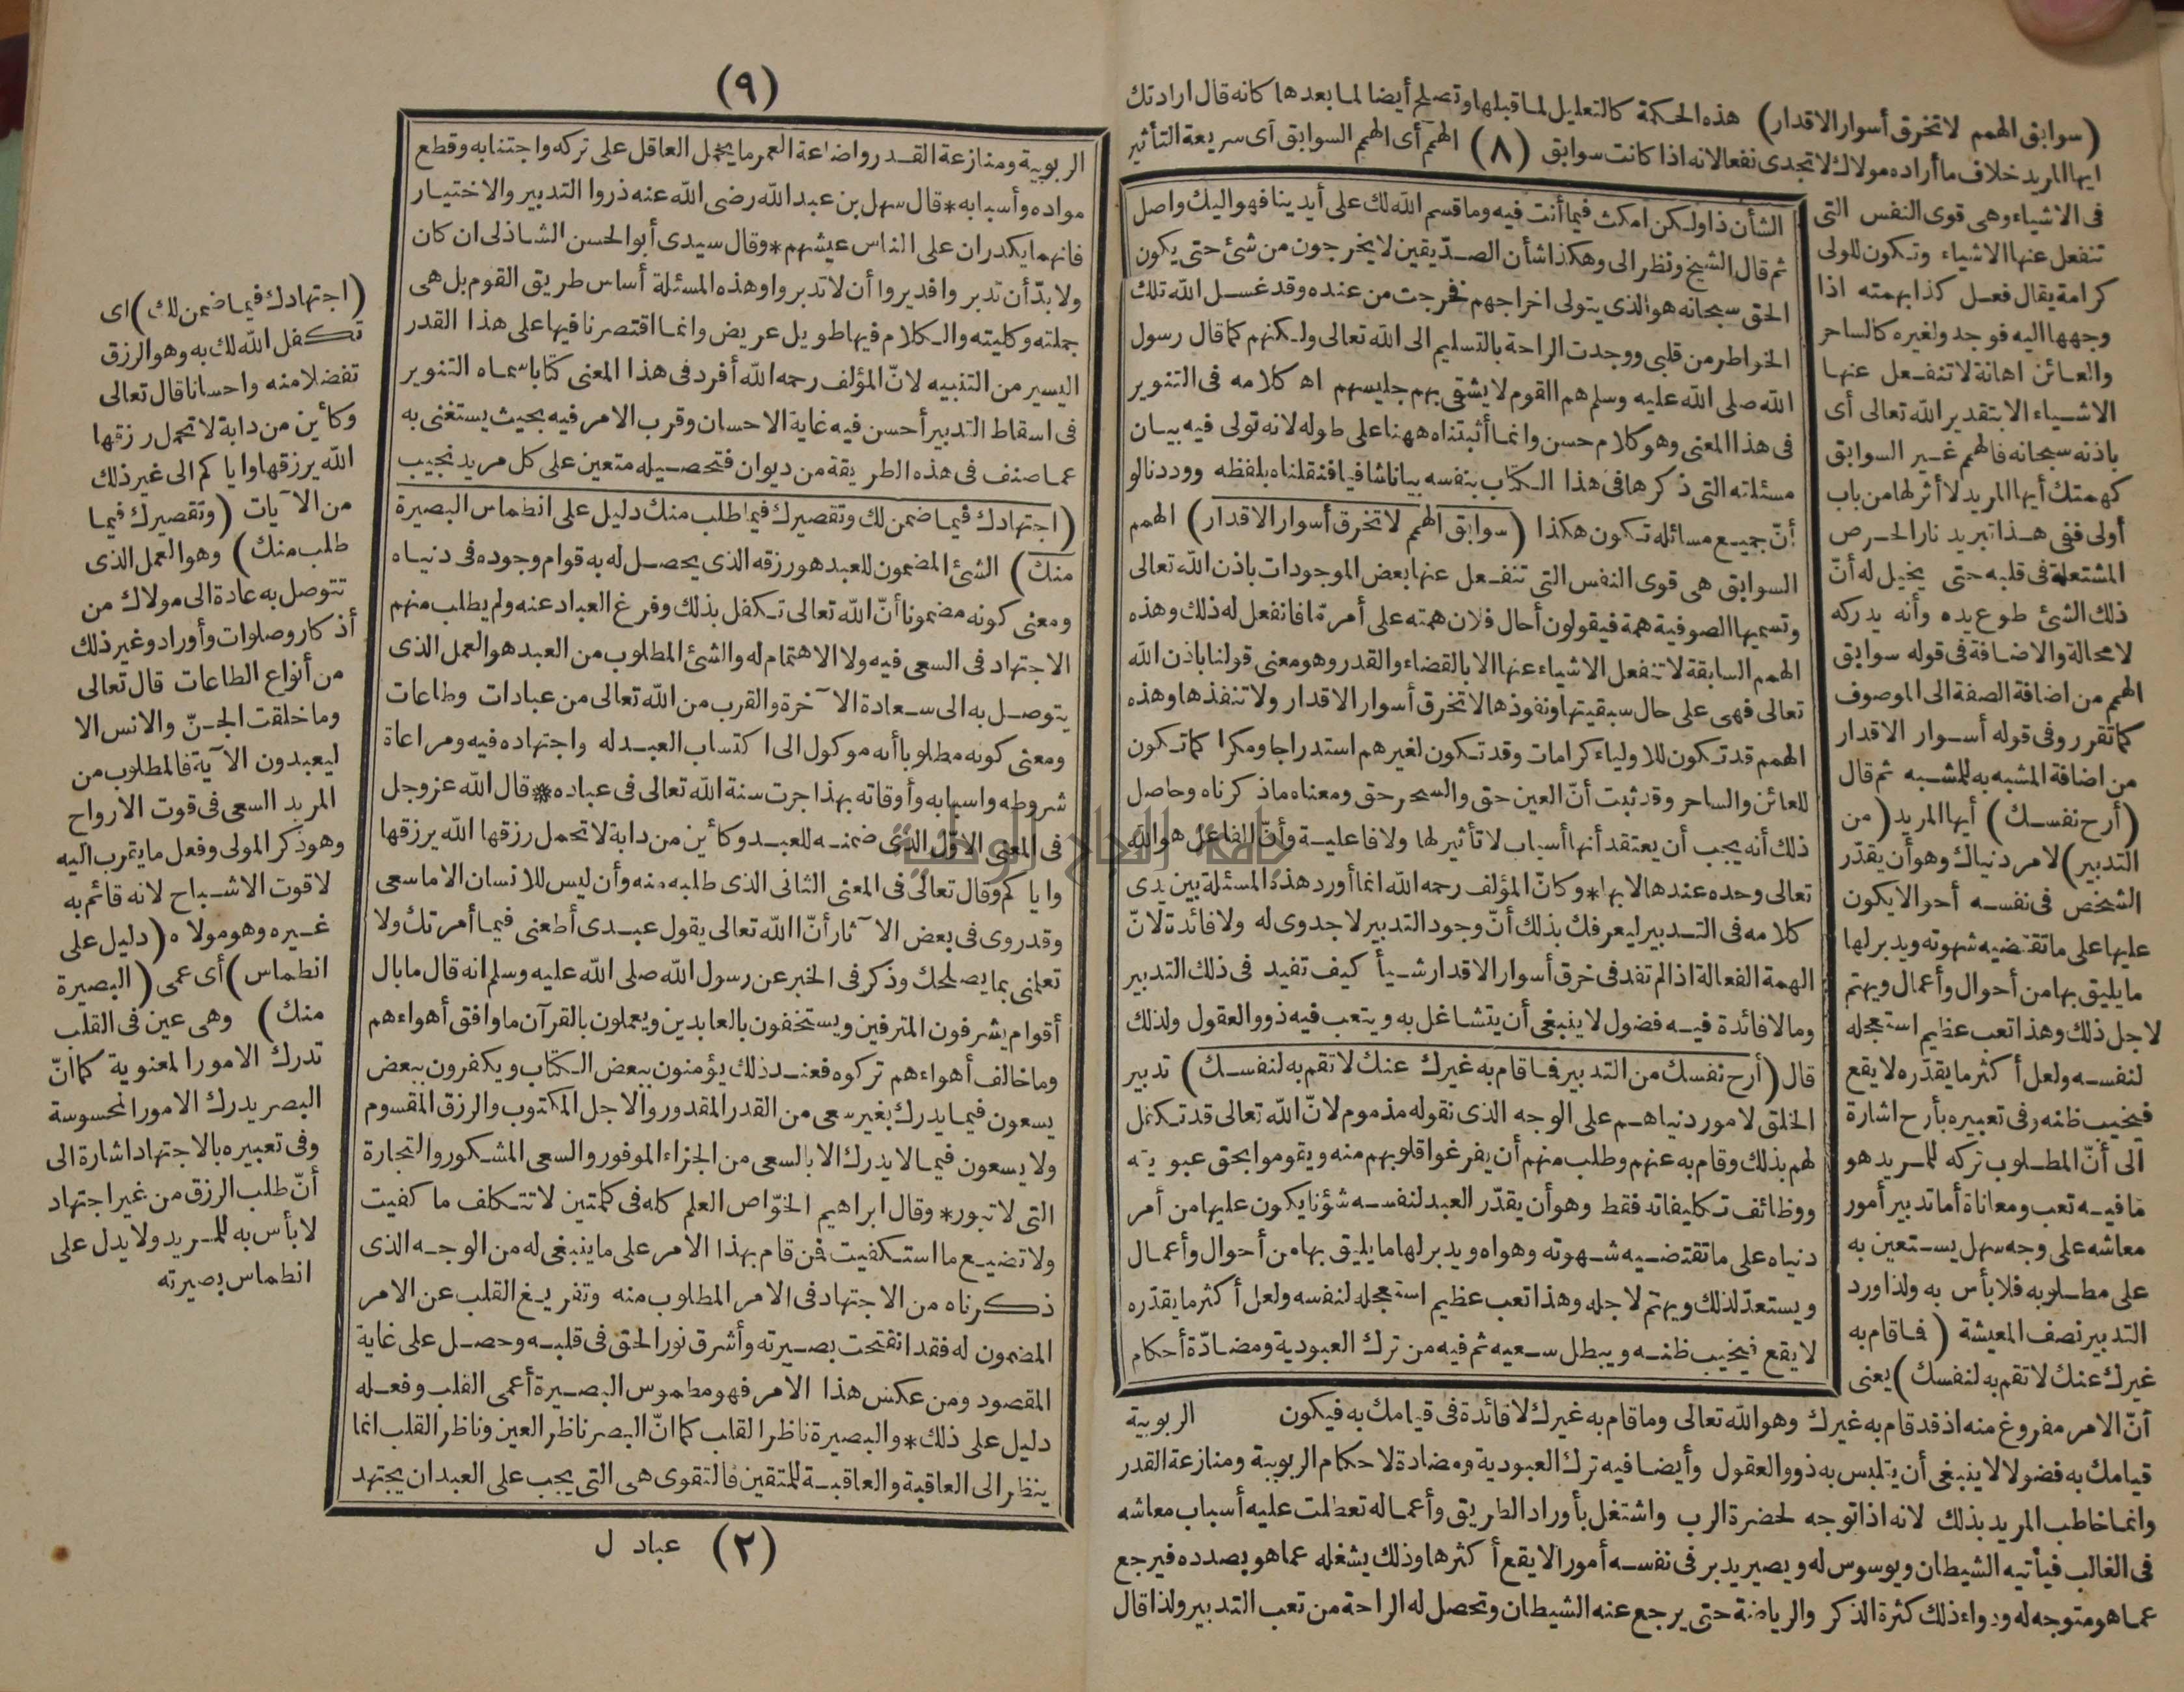 (سوابق الهمم لا تخرق أسوار الاقدار) هذه الحكمة كالتعليل لما قبلها وتصلح أيضا لما بعدها كانه قال ارادتك
ايها المريد خلاف ما أراده مولاك لا تجدى نفعا لانه اذا كانت سوابق (٨) الهمم أى الهمم السوابق أى سريعة التأثير
فى الاشياء وهى قوى النفس التى
تنفعل عنها الاشياء وتكون للولى
كرامة يقال فعل كذا بهمته اذا
وجهها اليه فوجد ولغيره كالساحر
والعائن اهانة لا تنفعل عنها
الاشياء الا بتقدير الله تعالى أى
باذنه سبحانه فالهمم غير السوابق
كهمتك أيها المريد لا أثر لها من باب
أولى ففى هذا تبريد نار الحرص
المشتعلة فى قلبه حتى يخيل له أنّ
ذلك الشئ طوع يده وأنه يدركه
لا محالة والاضافة فى قوله سوابق
الهمم من اضافة الصفة الى الموصوف
كما تقرر وفى قوله أسوار الاقدار
من اضافة المشبه به للمشبه ثم قال
(أرح نفسك) أيها المريد (من
التدبير) لامر دنياك وهو أن يقدّر
الشخص فى نفسه أحوالا يكون
عليها على ما تقتضيه شهوته ويدبر لها
ما يليق بها من أحوال وأعمال ويهتم
لاجل ذلك وهذا تعب عظيم استعجله
لنفسه ولعل أكثر ما يقدّره لا يقع
فيخيب ظنه وفى تعبيره بأرح اشارة
الى أنّ المطلوب تركه للمريد هو
ما فيه تعب ومعاناة أما تدبير أمور
معاشه على وجه سهل يستعين به
على مطلوبه فلا بأس به ولذا ورد
التدبير نصف المعيشة (فما قام به
غيرك عنك لا تقم به لنفسك) يعنى
أنّ الامر مفروغ منه اذ قد قام به غيرك وهو الله تعالى وما قام به غيرك لا فائدة فى قيامك به فيكون
قيامك به فضولا لا ينبغى أن يتلبس به ذوو العقول وأيضا فيه ترك العبودية ومضادة لاحكام الربوبية ومنازعة القدر
وانما خاطب المريد بذلك لانه اذا توجه لحضرة الرب واشتغل بأوراد الطريق وأعماله تعطلت عليه أسباب معاشه
فى الغالب فيأتيه الشيطان ويوسوس له ويصير يدبر فى نفسه أمورا لا يقع أكثرها وذلك يشغله عما هو بصدده فيرجع
عما هو متوجه له ودواء ذلك كثرة الذكر والرياضة حتى يرجع عنه الشيطان وتحصل له الراحة من تعب التدبير ولذا قال
الشأن ذا ولكن امكث فيما أنت فيه وما قسم الله لك على أيدينا فهو اليك واصل
ثم قال الشيخ ونظر الى وهكذا شأن الصدّيقين لا يخرجون من شئ حتى يكون
الحق سبحانه هو الذى يتولى اخراجهم فخرجت من عنده وقد غسل الله تلك
الخواطر من قلبى ووجدت الراحة بالتسليم الى الله تعالى ولكنهم كما قال رسول
الله صلى الله عليه وسلم هم القوم لا يشقى بهم جليسهم اه كلامه فى التنوير
فى هذا المعنى وهو كلام حسن وانما أثبتناه ههنا على طوله لانه تولى فيه بيان
مسئلته التى ذكرها فى هذا الكتاب بنفسه بيانا شافيا فنقلناه بلفظه ووددنا لو
أنّ جميع مسائله تكون هكذا (سوابق الهمم لا تخرق أسوار الاقدار) الهمم
السوابق هى قوى النفس التى تنفعل عنها بعض الموجودات باذن الله تعالى
وتسميها الصوفية همة فيقولون أحال فلان همته على أمر مّا فانفعل له ذلك وهذه
الهمم السابقة لا تنفعل الاشياء عنها الا بالقضاء والقدر وهو معنى قولنا باذن الله
تعالى فهى على حال سبقيتها ونفوذها لا تخرق أسوار الاقدار ولا تنفذها وهذه
الهمم قد تكون للاولياء كرامات وقد تكون لغيرهم استدراجا ومكرا كما تكون
للعائن والساحر وقد ثبت أنّ العين حق والسحر حق ومعناه ما ذكرناه وحاصل
ذلك أنه يجب أن يعتقد أنها أسباب لا تأثير لها ولا فاعلية وأنّ الفاعل هو الله
تعالى وحده عندها لا بها * وكانّ المؤلف رحمه الله انما أورد هذه المسئلة بين يدى
كلامه فى التدبير ليعرفك بذلك أنّ وجود التدبير لا جدوى له ولا فائدة لانّ
الهمة الفعالة اذا لم تفد فى خرق أسوار الاقدار شيأ كيف تفيد فى ذلك التدبير
وما لا فائدة فيه فضول لا ينبغى أن يتشاغل به ويتعب فيه ذوو العقول ولذلك
قال (أرح نفسك من التدبير فما قام به غيرك عنك لا تقم به لنفسك) تدبير
الخلق لامور دنياهم على الوجه الذى نقوله مذموم لانّ الله تعالى قد تكفل
لهم بذلك وقام به عنهم وطلب منهم أن يفرغوا قلوبهم منه ويقوموا بحق عبوديته
ووظائف تكليفاته فقط وهو أن يقدّر العبد لنفسه شؤنا يكون عليها من أمر
دنياه على ما تقتضيه شهوته وهواه ويدبر لها ما يليق بها من أحوال وأعمال
ويستعدّ لذلك ويهتم لاجله وهذا تعب عظيم استعجله لنفسه ولعل أكثر ما يقدّره
لا يقع فيخيب ظنه ويبطل سعيه ثم فيه من ترك العبودية ومضادّة أحكام
الربوبية
(٩)
الربوبية ومنازعة القدر واضاعة العمر ما يحمل العاقل على تركه واجتنابه وقطع
مواده وأسبابه * قال سهل بن عبد الله رضى الله عنه ذروا التدبير والاختيار
فانهما يكدران على الناس عيشهم * وقال سيدى أبو الحسن الشاذلى ان كان
ولا بدّ أن تدبروا فدبروا أن لا تدبروا وهذه المسئلة أساس طريق القوم بل هى
جملته وكليته والكلام فيها طويل عريض وانما اقتصرنا فيها على هذا القدر
اليسير من التنبيه لانّ المؤلف رحمه الله أفرد فى هذا المعنى كتابا سماه التنوير
فى اسقاط التدبير أحسن فيه غاية الاحسان وقرب الامر فيه بحيث يستغنى به
عما صنف فى هذه الطريقة من ديوان فتحصيله متعين على كل مريد نجيب
(اجتهادك فيما ضمن لك وتقصيرك فيما طلب منك دليل على انطماس البصيرة
منك) الشئ المضمون للعبد هو رزقه الذى يحصل له به قوام وجوده فى دنياه
ومعنى كونه مضمونا أنّ الله تعالى تكفل بذلك وفرغ العباد عنه ولم يطلب منهم
الاجتهاد فى السعى فيه ولا الاهتمام له والشئ المطلوب من العبد هو العمل الذى
يتوصل به الى سعادة الآخرة والقرب من الله تعالى من عبادات وطاعات
ومعنى كونه مطلوبا أنه موكول الى اكتساب العبد له واجتهاده فيه ومراعاة
شروطه واسبابه وأوقاته بهذا جرت سنة الله تعالى فى عباده * قال الله عز وجل
فى المعنى الاوّل الذى ضمنه للعبد وكأين من دابة لا تحمل رزقها الله يرزقها
واياكم وقال تعالى فى المعنى الثانى الذى طلبه منه وأن ليس للانسان الا ما سعى
وقد روى فى بعض الآثار أنّ الله تعالى يقول عبدى أطعنى فيما أمرتك ولا
تعلمنى بما يصلحك وذكر فى الخبر عن رسول الله صلى الله عليه وسلم انه قال ما بال
أقوام يشرفون المترفين ويستخفون بالعابدين ويعملون بالقرآن ما وافق أهواءهم
وما خالف أهواءهم تركوه فعند ذلك يؤمنون ببعض الكتاب ويكفرون ببعض
يسعون فيما يدرك بغير سعى من القدر المقدور والاجل المكتوب والرزق المقسوم
ولا يسعون فيما لا يدرك الا بالسعى من الجزاء الموفور والسعى المشكور والتجارة
التى لا تبور * وقال ابراهيم الخوّاص العلم كله فى كلمتين لا تتكلف ما كفيت
ولا تضيع ما استكفيت فمن قام بهذا الامر على ما ينبغى له من الوجه الذى
ذكرناه من الاجتهاد فى الامر المطلوب منه وتفريغ القلب عن الامر
المضمون له فقد انفتحت بصيرته وأشرق نور الحق فى قلبه وحصل على غاية
المقصود ومن عكس هذا الامر فهو مطموس البصيرة أعمى القلب وفعله
دليل على ذلك * والبصيرة ناظر القلب كما انّ البصر ناظر العين وناظر القلب انما
ينظر الى العاقبة والعاقبة للمتقين فالتقوى هى التى يجب على العبد ان يجتهد
(اجتهادك فيما ضمن لك) اى
تكفل الله لك به وهو الرزق
تفضلا منه واحسانا قال تعالى
وكأين من دابة لا تحمل رزقها
الله يرزقها واياكم الى غير ذلك
من الآيات (وتقصيرك فيما
طلب منك) وهو العمل الذى
تتوصل به عادة الى مولاك من
أذكار وصلوات وأوراد وغير ذلك
من أنواع الطاعات قال تعالى
وما خلقت الجنّ والانس الا
ليعبدون الآية فالمطلوب من
المريد السعى فى قوت الارواح
وهو ذكر المولى وفعل ما يقرب اليه
لا قوت الاشباح لانه قائم به
غيره وهو مولاه (دليل على
انطماس) أى عمى (البصيرة
منك) وهى عين فى القلب
تدرك الامور المعنوية كما انّ
البصر يدرك الامور المحسوسة
وفى تعبيره بالاجتهاد اشارة الى
أنّ طلب الرزق من غير اجتهاد
لا بأس به للمريد ولا يدل على
انطماس بصيرته
(٢) عباد ل